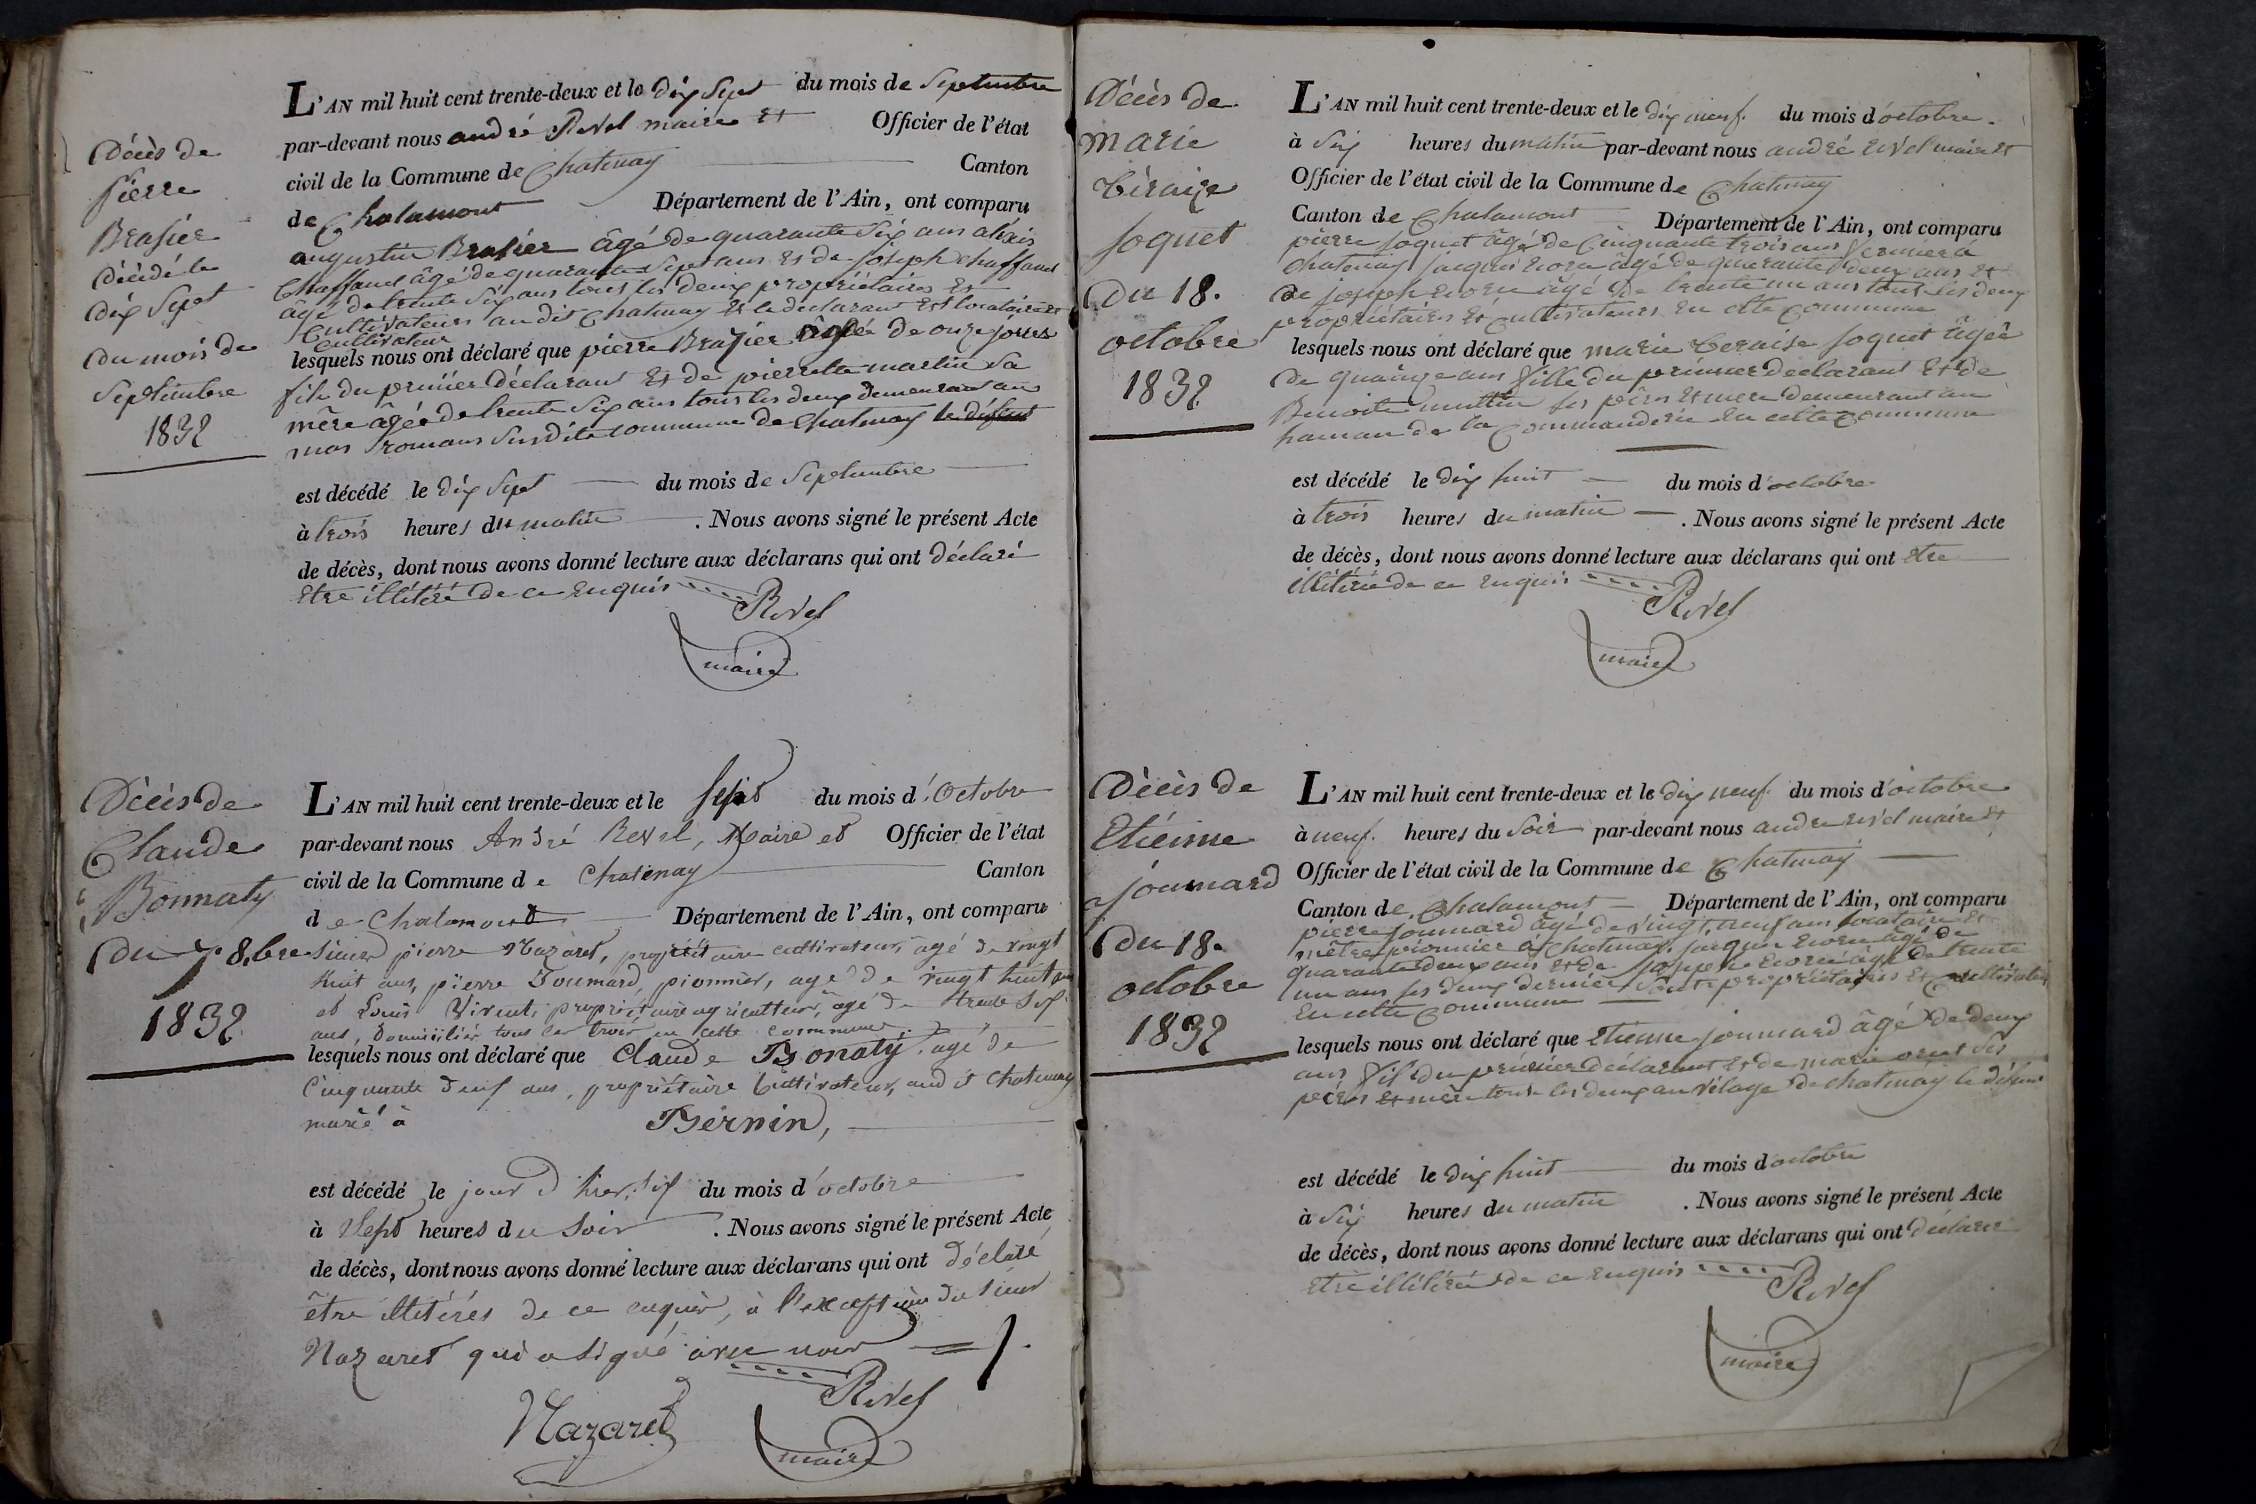 Décès de
pierre
Brasier
décédé le
dix Sept
du mois de
Septembre
1832
L'AN mil huit cent trente-deux et le dix Sept du mois de Septembre
par-devant nous andré Revel maire et Officier de l'état
civil de la Commune de Chatenay Canton
de Chalamont Département de l'Ain, ont comparu
augustin Brasier âgé de quarante Six ans alexis
Chaffaud âgé de quarante Sept ans et de joseph chaffaud
âgé de trente Six ans tous les deux propriétaires et
Cultivateurs au dit Chatenay et le declarant est locataire et
Cultivateur
lesquels nous ont déclaré que pierre Brazier âgé de onze jours
fils du premier déclarant et de pierrette martin sa
mère âgée de trente Six ans tous les deux demeurant au
mas romans Susdite commune de Chatenay le défunt
est décédé le dix Sept du mois de Septembre
à trois heures du matin . Nous avons signé le présent Acte
de décès, dont nous avons donné lecture aux déclarans qui ont déclaré
etre illitéré de ce enquis
Revel
maire
Décès de
Claude
Bonnaty
du 7 8.bre
1832
L'AN mil huit cent trente-deux et le Sept du mois d'Octobre
par-devant nous André Revel, Maire et Officier de l'état
civil de la Commune de Chatenay Canton
de Chalamont Département de l'Ain, ont comparu
sieur pierre Nazaret, propriétaire cultivateur, agé de vingt
huit ans, pierre Joumard, pionnier, agé de vingt huit ans
et Louis Vivent, propriétaire agriculteur, âgé de trente Six
ans, domiciliés tous les trois en cette commune;
lesquels nous ont déclaré que Claude Bonaty, agé de
Cinquante deux ans, propriétaire Cultivateur, audit Chatenay
marié à Bernin,
est décédé le jour d'hier, six du mois d'octobre
à Sept heures du Soir . Nous avons signé le présent Acte
de décès, dont nous avons donné lecture aux déclarans qui ont déclaré
être illitérés de ce enquis, à l'exception du sieur
Nazaret qui a signé avec nous
Revel
Nazaret
maire
Décès de
marie
téraize
joquet
Du 18.
octobre
1832
L'AN mil huit cent trente-deux et le dix neuf. du mois d'octobre.
à Six heures du matin par-devant nous andré revel maire et
Officier de l'état civil de la Commune de Chatenay
Canton de Chalamont Département de l'Ain, ont comparu
pierre joquet âgé de Cinquante trois ans fermier à
Chatenay jacques âgé de quarante deux ans et
de joseph âgé de trente un ans tous les deux
propriétaires et Cultivateurs en cette Commune
lesquels nous ont déclaré que marie teraise joquet âgée
de quainze ans fille du premier déclarant et de
Benoite ses pères et mere demeurant au
hamau de la Commanderie en cette Commune
est décédé le dix huit du mois d'octobre
à trois heures du matin . Nous avons signé le présent Acte
de décès, dont nous avons donné lecture aux déclarans qui ont etre
illitéré de ce enquis
Revel
maire
Décès de
Etienne
joumard
du 18.
octobre
1832
L'AN mil huit cent trente-deux et le dix neuf. du mois d'octobre
à neuf. heures du Soir par-devant nous andre revel maire et
Officier de l'état civil de la Commune de Chatenay
Canton de Chalamont Département de l'Ain, ont comparu
pierre joumard âgé de vingt neuf ans locataire et
mêtre pionnier à Chatenay, jacques âgé de
quarante deux ans et de joseph âgé de trente
un ans ses deux dernier Sont propriétaires et Cultivateurs
En cette Commune
lesquels nous ont déclaré que Etienne joumard âgé de deux
ans fils du premier déclarant et de marie ses
pères et mère tous les deux au vilage de chatenay le défunt
est décédé le dix huit du mois d'octobre
à Six heures du matin . Nous avons signé le présent Acte
de décès, dont nous avons donné lecture aux déclarans qui ont déclaré
etre illitéré de ce enquis
Revel
maire